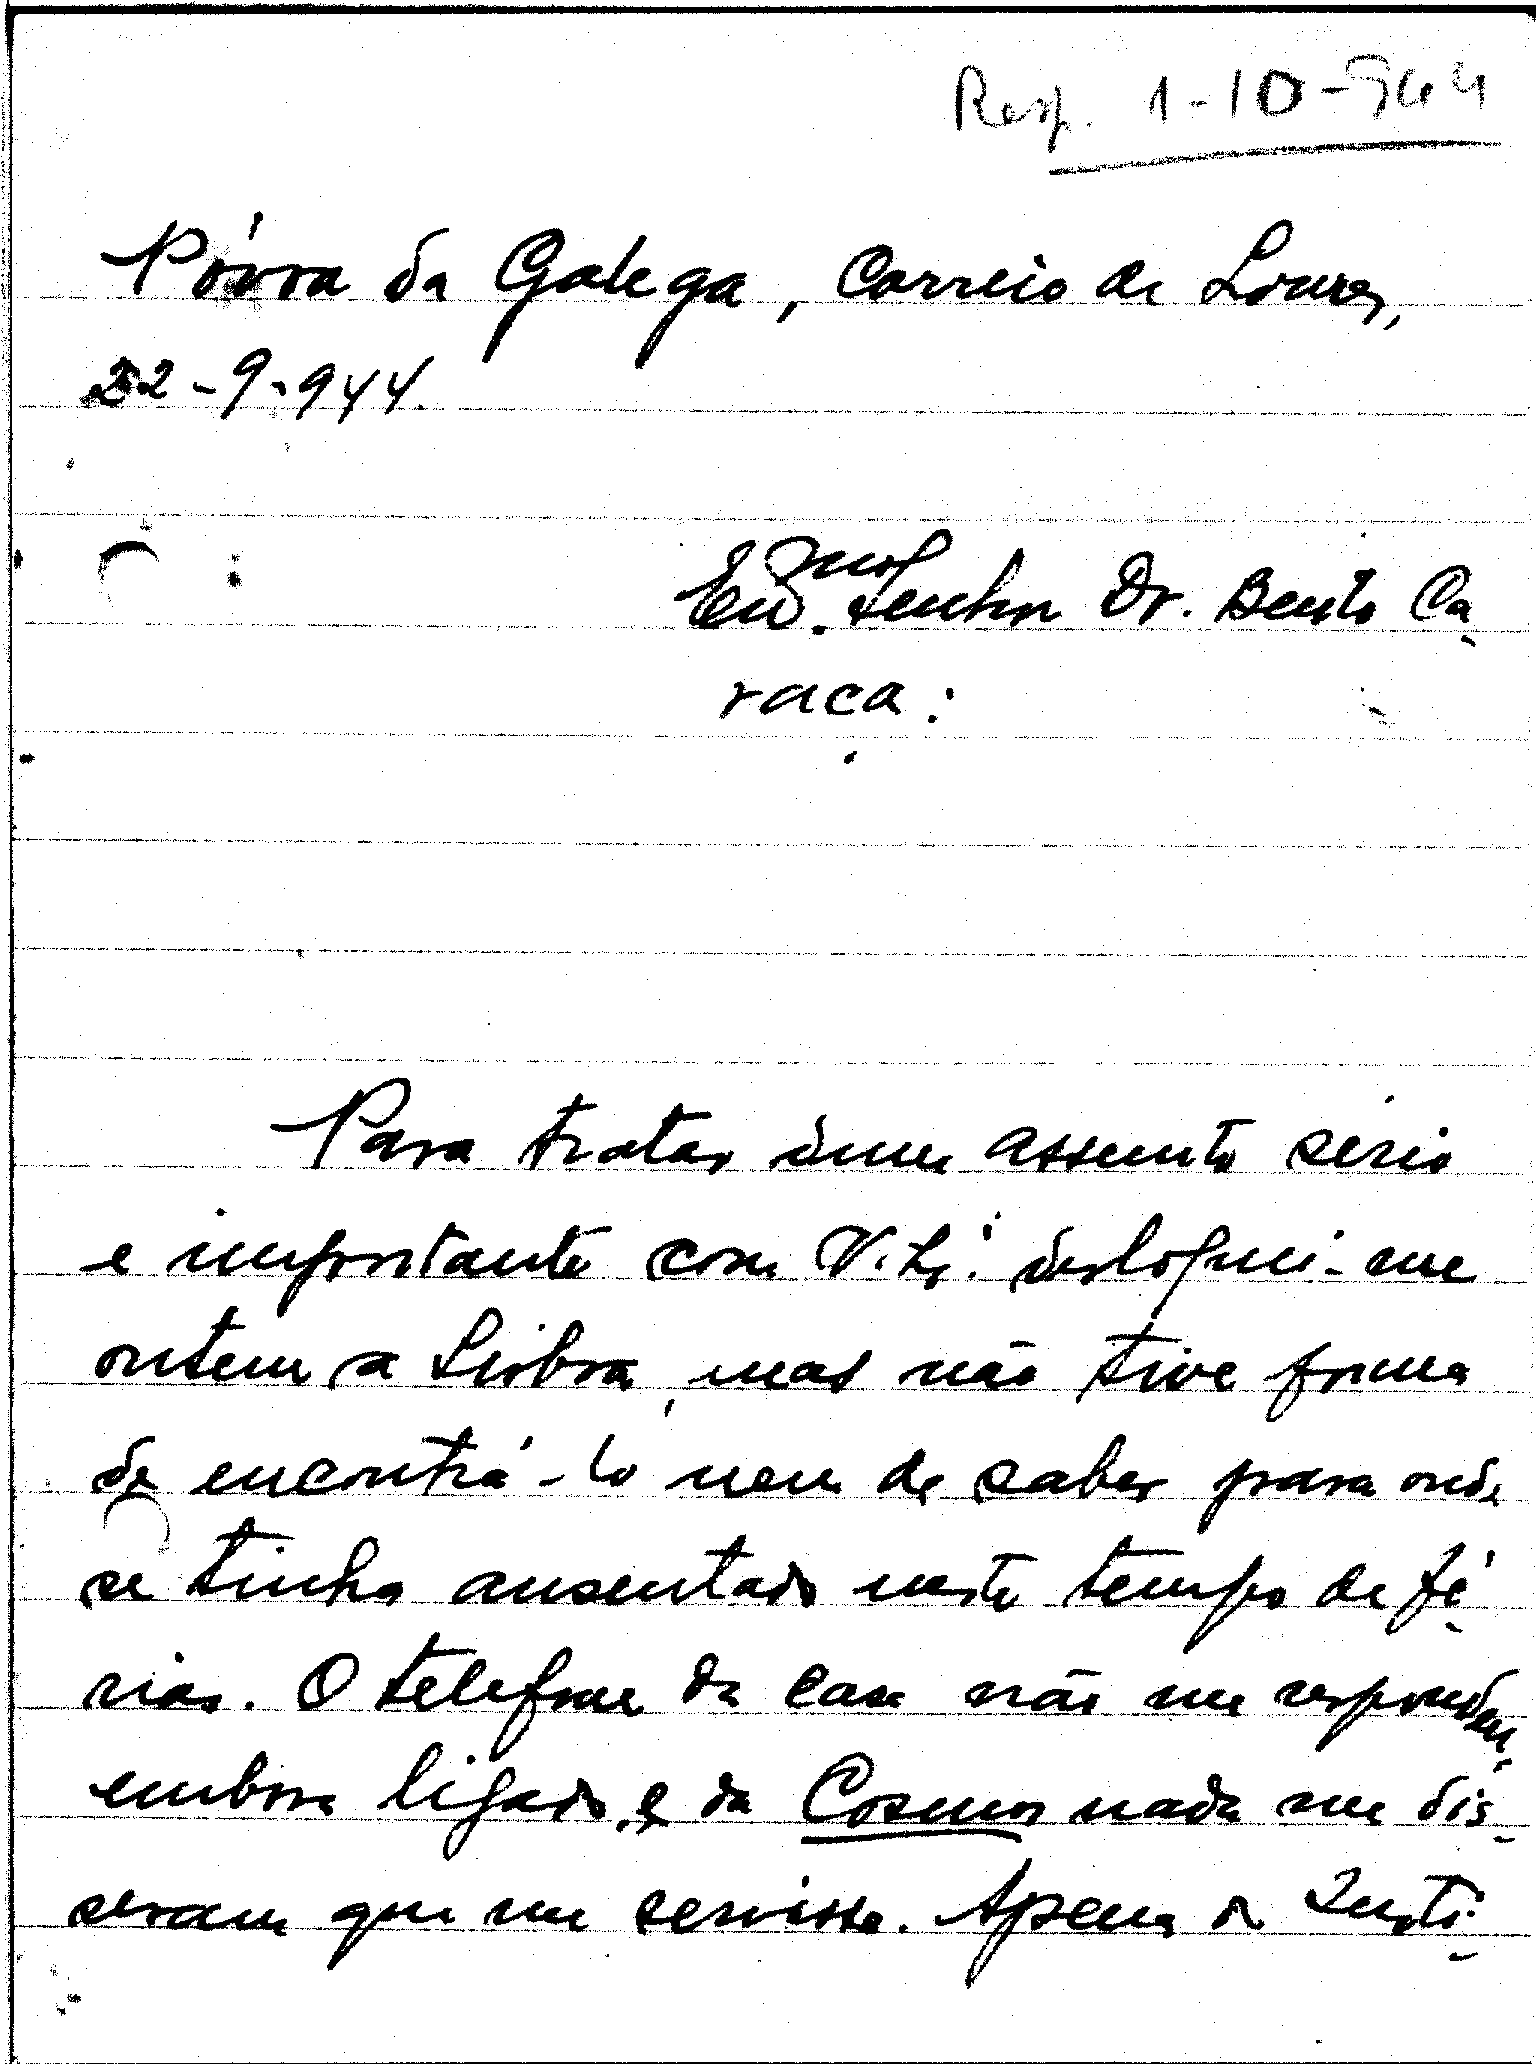 Resp. 1-10-944
Póvoa da Galega, Correio de Loures,
22-9-944.
Exmo. Senhor Dr. Bento Ca-
raca:
Para tratar dum assunto sério
e importante com V. Ex.ª desloquei-me
ontem a Lisboa, mas não tive forma
de encontrá-lo nem de saber para onde
se tinha ausentado neste tempo de fé-
rias. O telefone da casa não me respondeu,
embora ligado, e da Cosmos nada me dis-
seram que me servisse. Apenas o